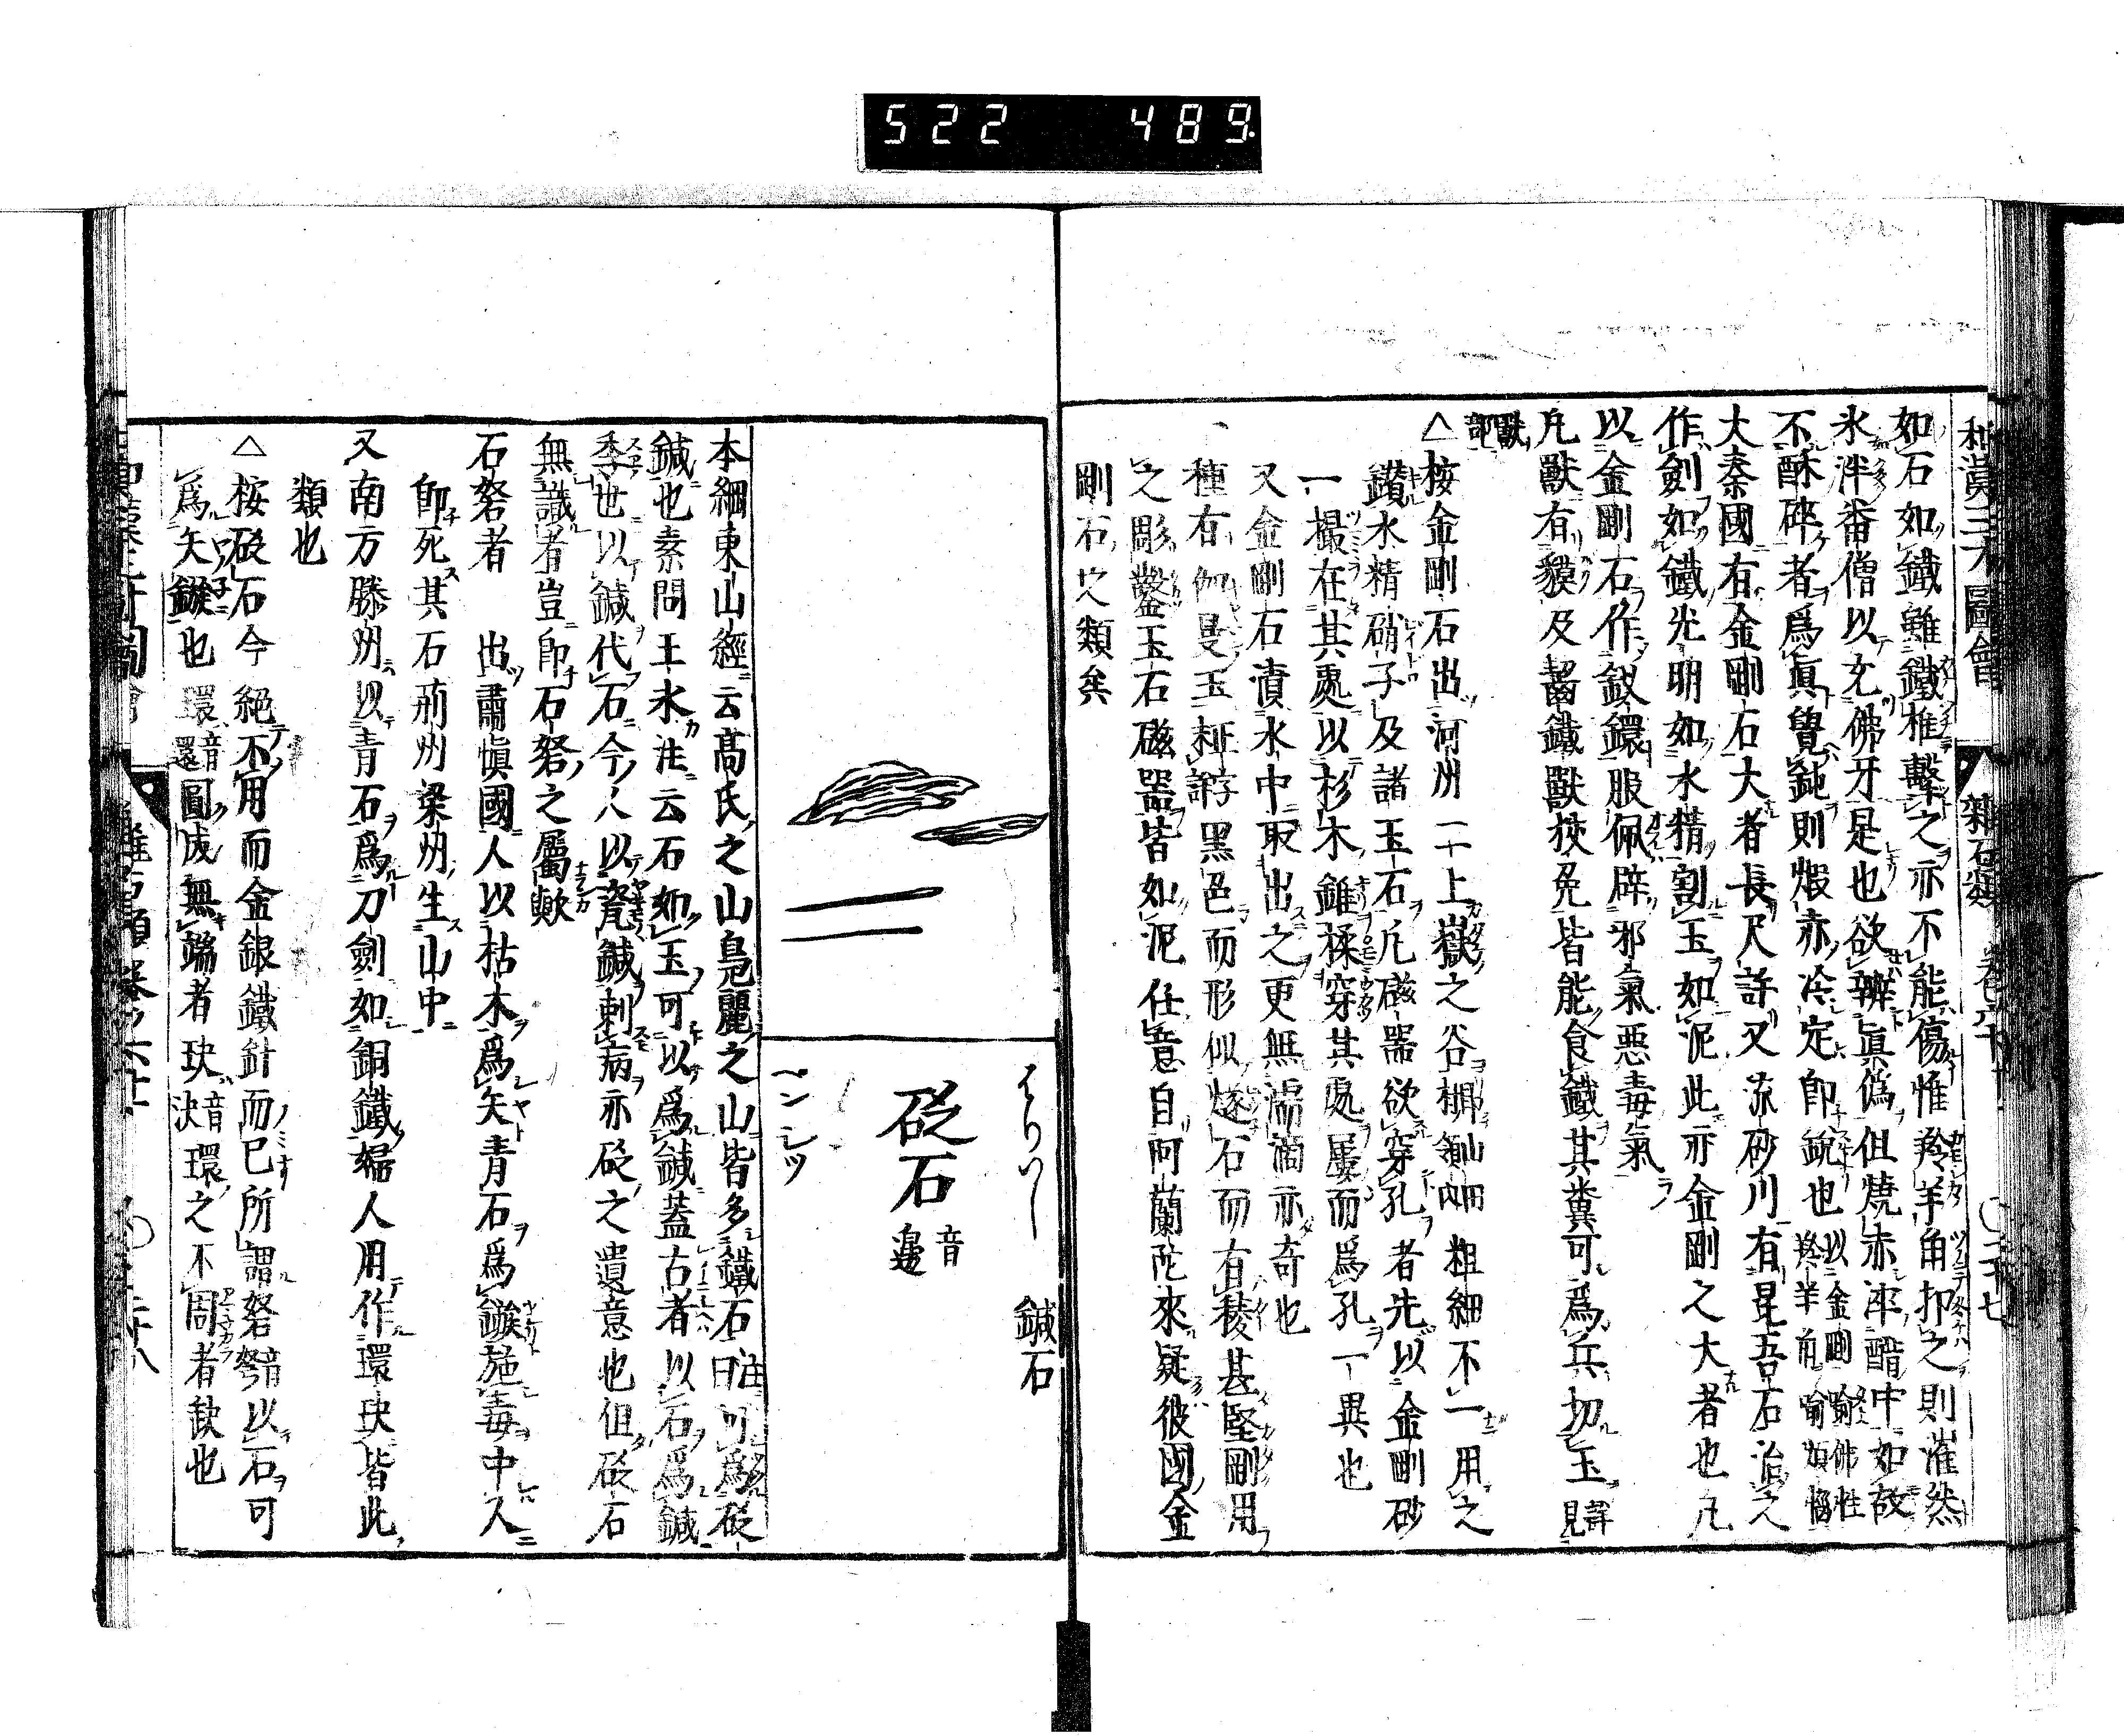 522 489
和漢三才圖會 雜石類 卷六十 ○二十七
如石如鐵雖鐵椎擊之亦不能傷惟羚羊角扣之則漼然
氷泮番僧以充佛牙是也欲辨眞僞但燒赤淬醋中如故
不酥碎者爲眞覺鈍則煆赤冷定卽銳也以金剛喻佛性羚羊角喻煩惱
大秦國有金剛石大者長尺許又流砂川有昆吾石治之
作劍如鐵光明如水精割玉如泥此亦金剛之大者也凡
以金剛石作釵鐶服佩辟邪氣惡毒氣
凡獸有貘及齧鐵獸狡兔皆能食鐵其糞可爲兵切玉詳見
獸部
△按金剛石出河州二上嶽之谷 粗細不一用之
鑽水精硝子及諸玉石凡磁器欲穿孔者先以金剛砂
一撮在其處以杉木錐揉穿其處屢而爲孔一異也
又金剛石漬水中取出之更無濡滴亦奇也
種有 玉 黑色而形似燧石而有稜甚堅剛用
之彫鑿玉石磁器皆如泥任意自阿蘭陀來疑彼國金
剛石之類矣
はりいし
鍼石
砭石
音邊
ペンシツ
本綱東山經云高氏之山鳧麗之山皆多鐵石注曰可爲砭
鍼也素問王氷注云石如玉可以爲鍼蓋古者以石爲鍼
季世以鍼代石今人以瓷鍼刺病亦砭之遺意也但砭石
無識者豈卽石砮之屬歟
石砮者 出肅愼國人以枯木爲矢青石爲鏃施毒中人
卽死其石荊州梁州生山中
又南方滕州以青石爲刀劍如銅鐵婦人用作環玦皆此
類也
△按砭石今絕不用而金銀鐵針而已所謂砮音弩以石可
爲矢鏃也環音還圓成無端者玦音決環之不周者缺也